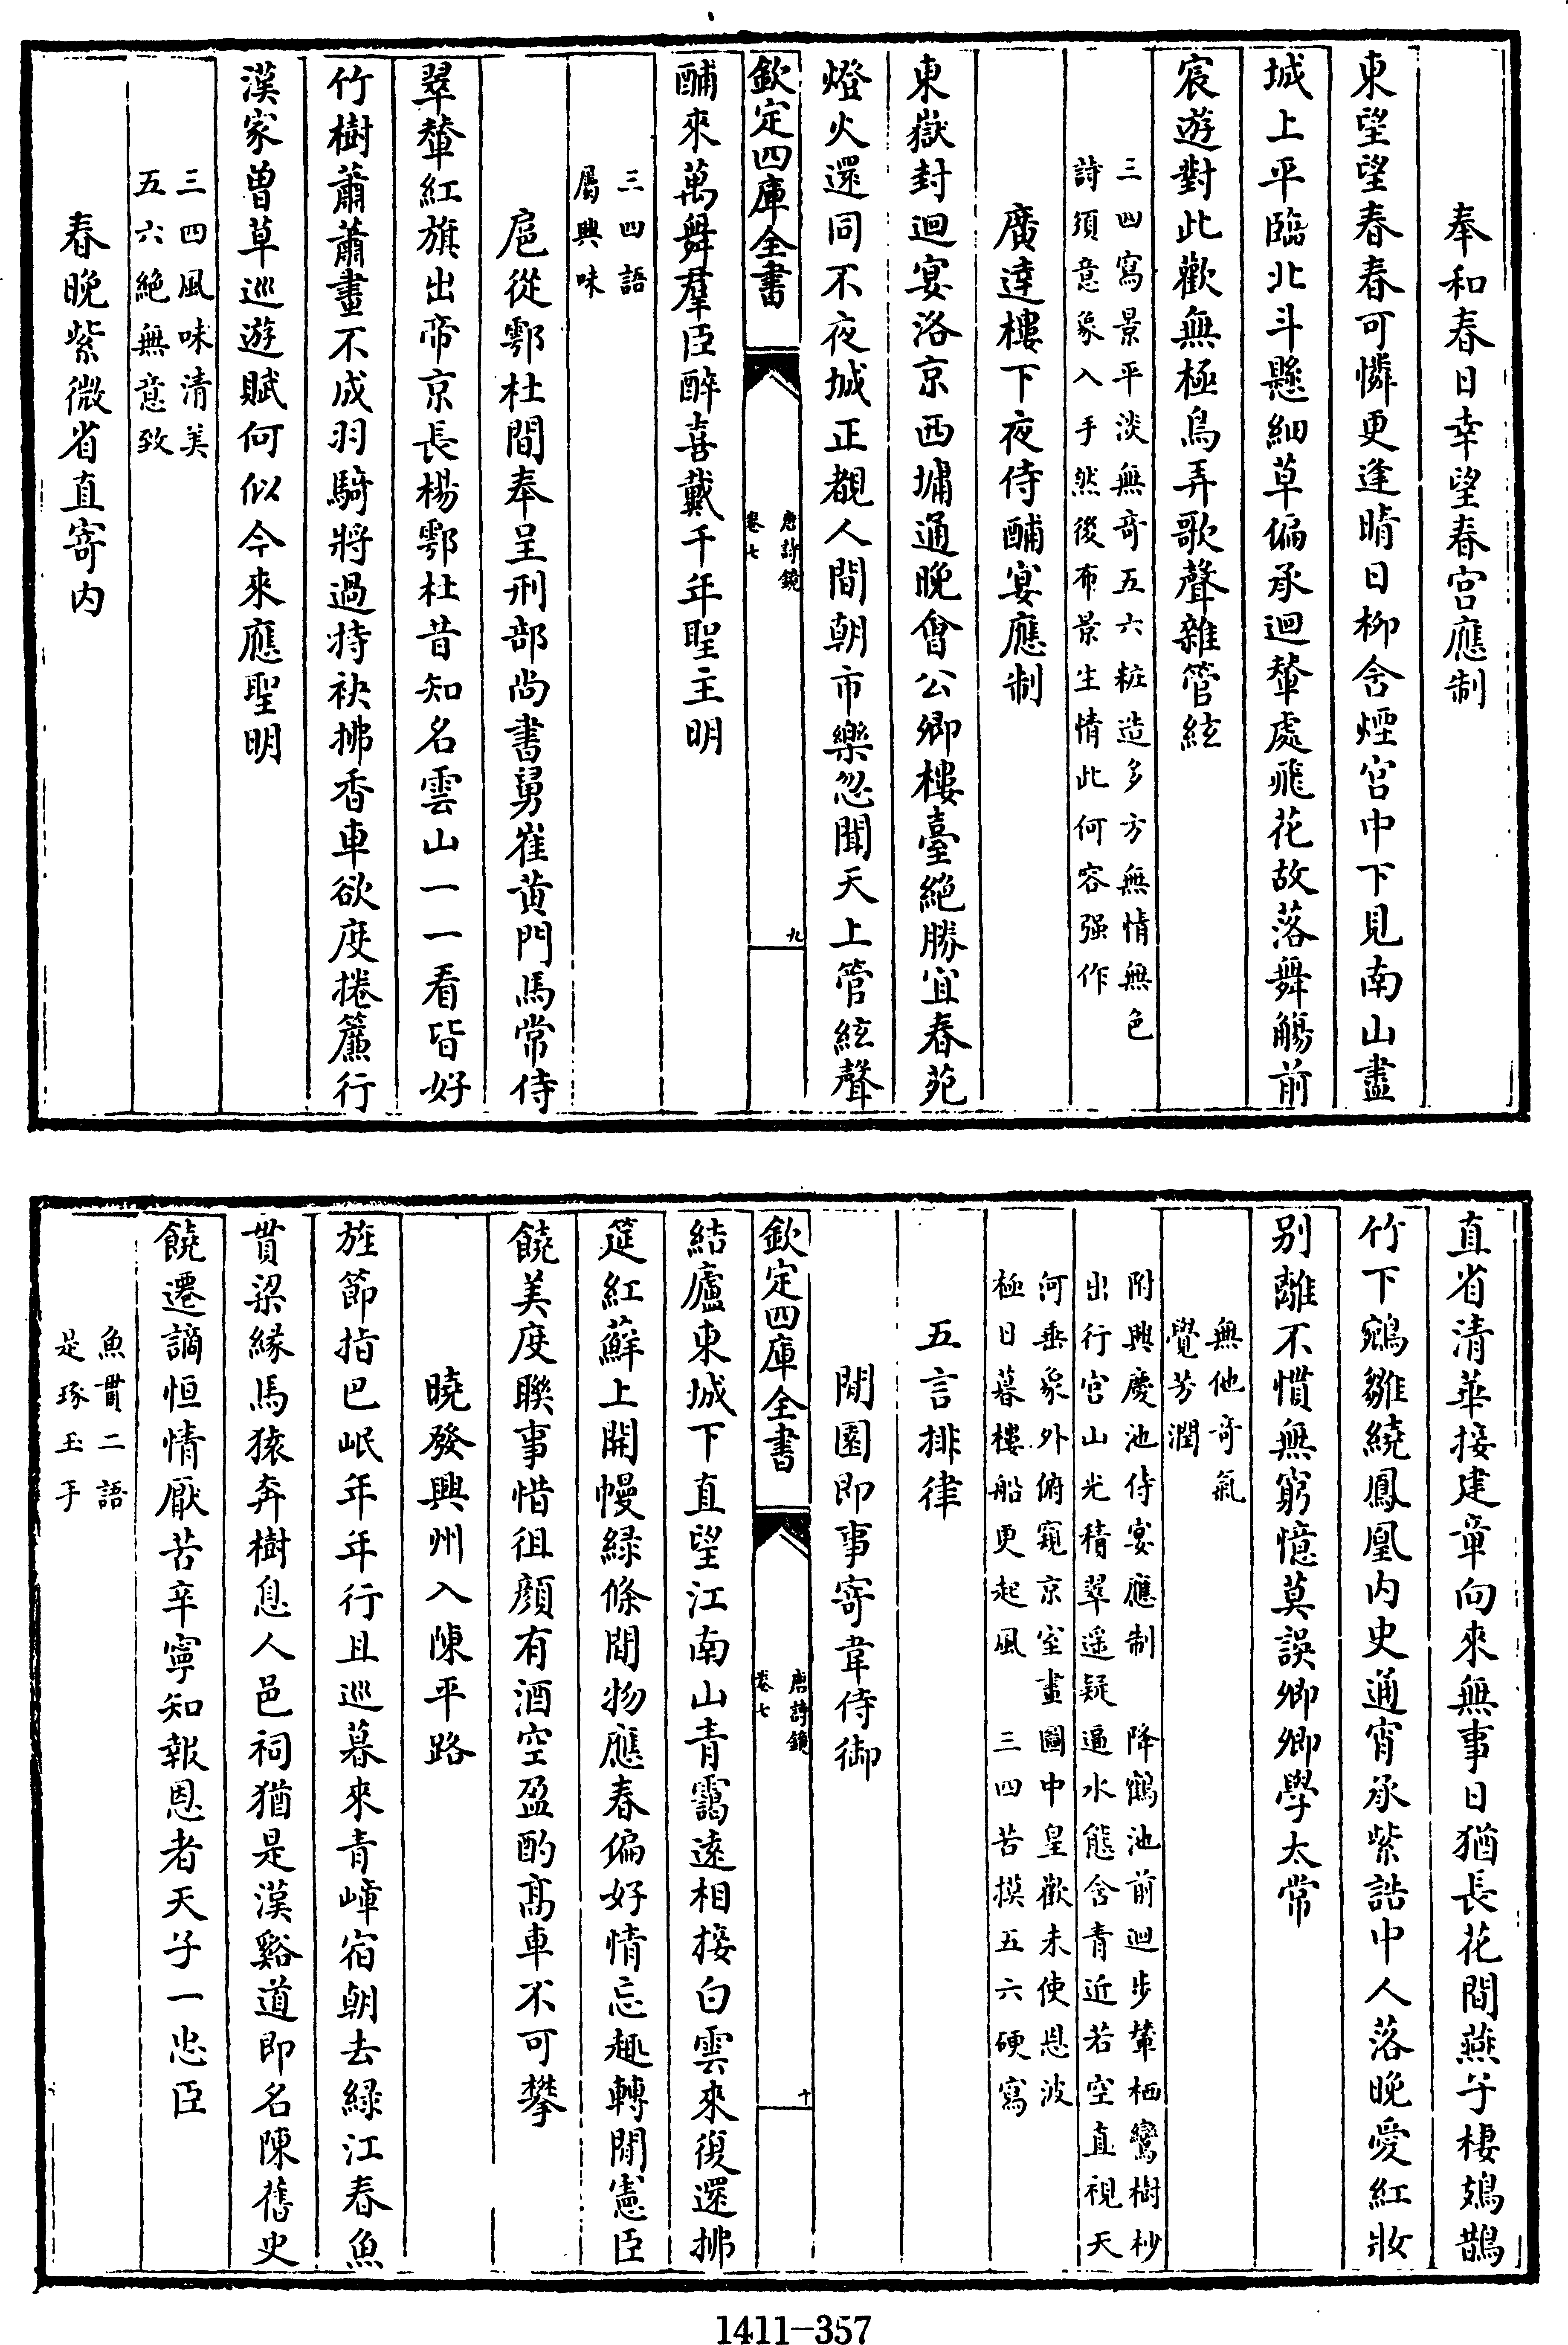 奉和春日幸望春宫應制
東望望春春可憐更逢晴日柳含煙宫中下見南山盡
城上平臨北斗懸細草偏承迴輦處飛花故落舞觴前
宸遊對此歡無極鳥弄歌聲雜管絃
三四寫景平淡無奇五六粧造多方無情無色
詩須意象入手然後布景生情此何容强作
廣達樓下夜侍酺宴應制
東嶽封迴宴洛京西墉通晚會公卿樓臺絶勝宜春苑
燈火還同不夜城正覩人間朝市樂忽聞天上管絃聲
欽定四庫全書
唐詩鏡
卷七
九
酺來萬舞羣臣醉喜戴千年聖主明
三四語
屬興味
扈從鄠杜間奉呈刑部尚書舅崔黄門馬常侍
翠輦紅旗出帝京長楊鄠杜昔知名雲山一一看皆好
竹樹蕭蕭畫不成羽騎將過持袂拂香車欲度捲簾行
漢家曽草巡遊賦何似今來應聖明
三四風味清美
五六絶無意致
春晚紫微省直寄内
直省清華接建章向來無事日猶長花間燕子棲鳷鵲
竹下鵷雛繞鳳凰内史通宵承紫誥中人落晚愛紅妝
别離不慣無窮憶莫誤卿卿學太常
無他奇氣
覺芳潤
附興慶池侍宴應制　降鶴池前迴步輦栖鸞樹杪
出行宫山光積翠遥疑逼水態含青近若空直視天
河垂象外俯窺京室畫圖中皇歡未使恩波
極日暮樓船更起風　三四苦摸五六硬寫
五言排律
閒園即事寄韋侍御
欽定四庫全書
唐詩鏡
卷七
十
結廬東城下直望江南山青靄遠相接白雲來復還拂
筵紅蘚上開幔緑條間物應春偏好情忘趣轉閒憲臣
饒美度聯事惜徂顔有酒空盈酌高車不可攀
曉發興州入陳平路
旌節指巴岷年年行且巡暮來青嶂宿朝去緑江春魚
貫梁緣馬猿奔樹息人邑祠猶是漢谿道即名陳舊史
饒遷謫恒情厭苦辛寧知報恩者天子一忠臣
魚貫二語
是琢玉手
1411-357